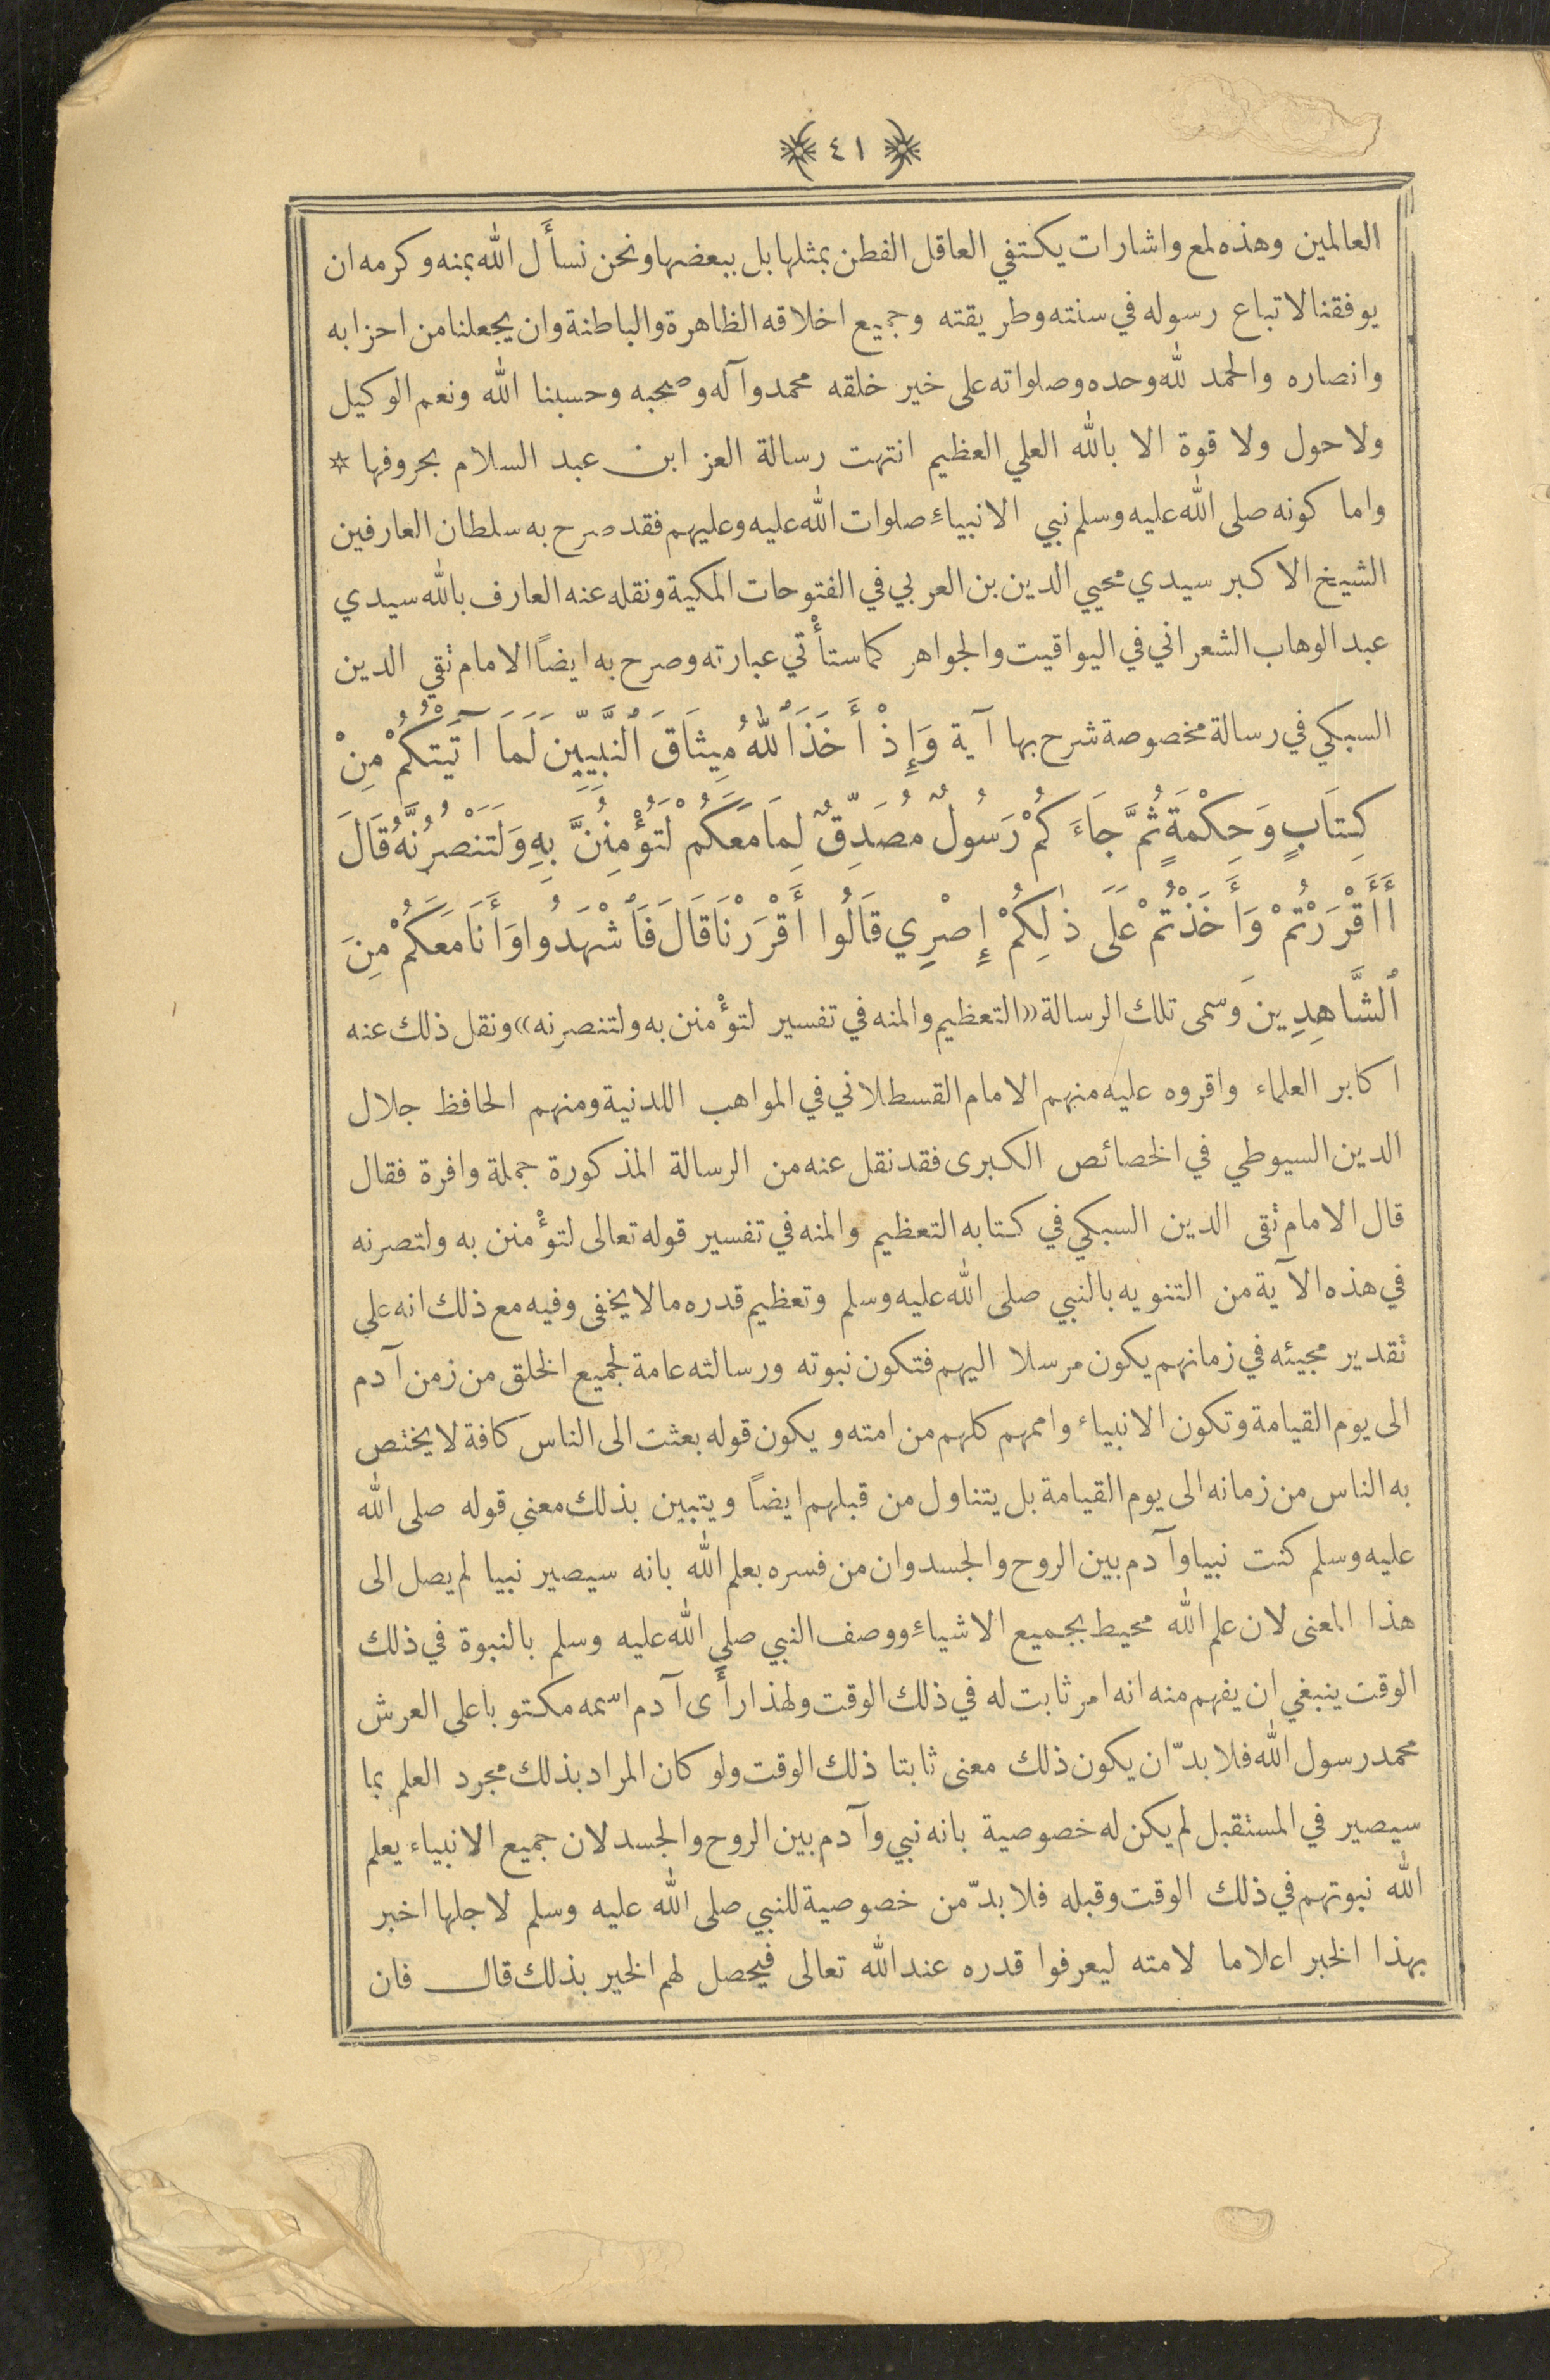 ﴿ ٤١ ﴾
العالمين وهذه لمع واشارات يكتفي العاقل الفطن بمثلها بل ببعضها ونحن نسأَل الله بمنه وكرمه ان
يوفقنا لاتباع رسوله في سنته وطريقته وجميع اخلاقه الظاهرة والباطنة وان يجعلنا من احزابه
وانصاره والحمد لله وحده وصلواته على خير خلقه محمد وآله وصحبه وحسبنا الله ونعم الوكيل
ولا حول ولا قوة الا بالله العلي العظيم انتهت رسالة العز ابن عبد السلام بحروفها *
واما كونه صلى الله عليه وسلم نبي الانبياء صلوات الله عليه وعليهم فقد صرح به سلطان العارفين
الشيخ الاكبر سيدي محيي الدين بن العربي في الفتوحات المكية ونقله عنه العارف بالله سيدي
عبد الوهاب الشعراني في اليواقيت والجواهر كما ستأْتي عبارته وصرح به ايضاً الامام تقي الدين
السبكي في رسالة مخصوصة شرح بها آية وَإِذْ أَخَذَ ٱللهُ مِيثَاقَ ٱلنَّبِيِّينَ لَمَا آتَيْتُكُمْ مِنْ
كِتَابٍ وَحِكْمَةٍ ثُمَّ جَاءَ كُمْ رَسُولٌ مُصَدِّقٌ لِمَا مَعَكُمْ لَتُؤْمِنُنَّ بِهِ وَلَتَنْصُرُنَّهُ قَالَ
أَأَقْرَرْتُمْ وَأَخَذْتُمْ عَلَى ذٰلِكُمْ إِصْرِي قَالُوا أَقْرَرْنَا قَالَ فَٱشْهَدُوا وَأَنَا مَعَكُمْ مِنَ
ٱلشَّاهِدِينَ وسمى تلك الرسالة «التعظيم والمنه في تفسير لتؤْمنن به ولتنصرنه» ونقل ذلك عنه
اكابر العلماء واقروه عليه منهم الامام القسطلاني في المواهب اللدنية ومنهم الحافظ جلال
الدين السيوطي في الخصائص الكبرى فقد نقل عنه من الرسالة المذكورة جملة وافرة فقال
قال الامام تقى الدين السبكي في كتابه التعظيم والمنه في تفسير قوله تعالى لتؤْمنن به ولتصرنه
في هذه الآية من التنويه بالنبي صلى الله عليه وسلم وتعظيم قدره ما لا يخفى وفيه مع ذلك انه على
تقدير مجيئه في زمانهم يكون مرسلا اليهم فتكون نبوته ورسالته عامة لجميع الخلق من زمن آدم
الى يوم القيامة وتكون الانبياء واممهم كلهم من امته ويكون قوله بعثت الى الناس كافة لا يختص
به الناس من زمانه الى يوم القيامة بل يتناول من قبلهم ايضاً ويتبين بذلك معنى قوله صلى الله
عليه وسلم كنت نبيا وآدم بين الروح والجسد وان من فسره بعلم الله بانه سيصير نبيا لم يصل الى
هذا المعنى لان علم الله محيط بجميع الاشياء ووصف النبي صلى الله عليه وسلم بالنبوة في ذلك
الوقت ينبغي ان يفهم منه انه امر ثابت له في ذلك الوقت ولهذا رأَى آدم اسمه مكتوبا على العرش
محمد رسول الله فلا بدّ ان يكون ذلك معنى ثابتا ذلك الوقت ولو كان المراد بذلك مجرد العلم بما
سيصير في المستقبل لم يكن له خصوصية بانه نبي وآدم بين الروح والجسد لان جميع الانبياء يعلم
الله نبوتهم في ذلك الوقت وقبله فلا بدّ من خصوصية للنبي صلى الله عليه وسلم لاجلها اخبر
بهذا الخبر اعلاما لامته ليعرفوا قدره عند الله تعالى فيحصل لهم الخير بذلك قال فان